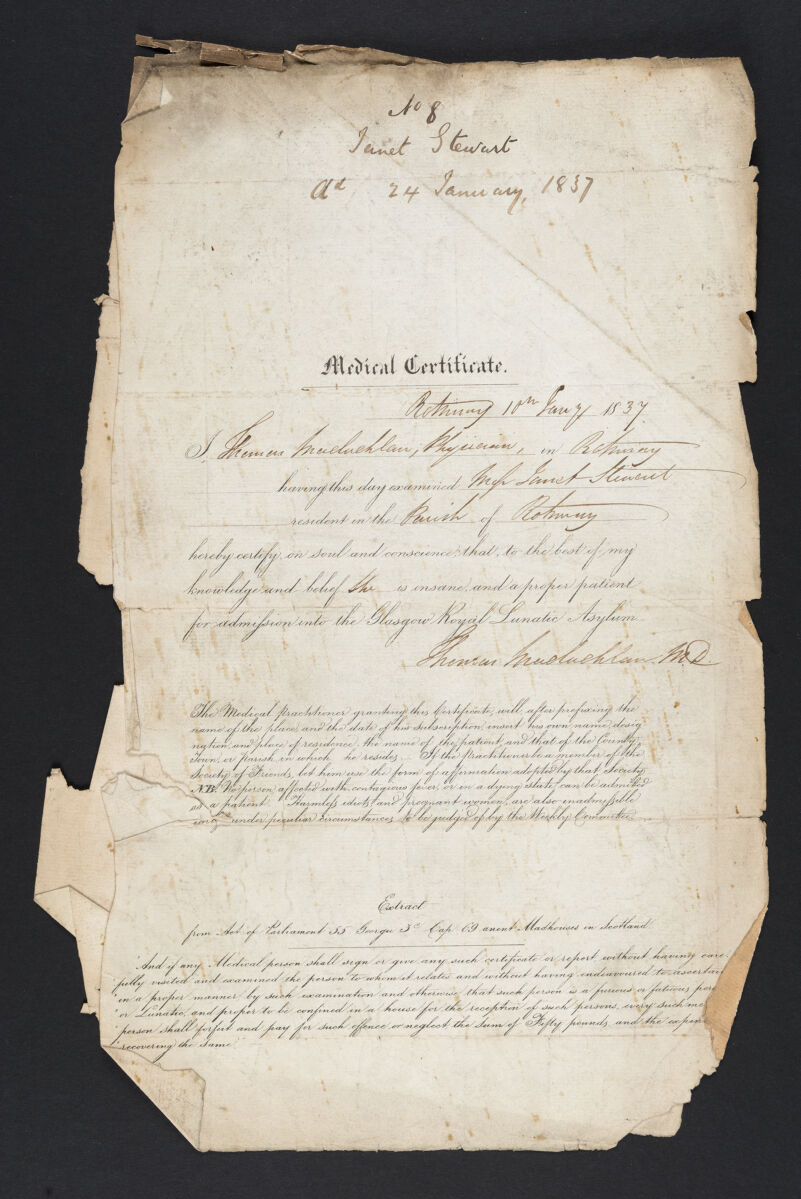 No 8
Janet Stewart
Ad 24 January, 1837
Medical Certificate.
Rothesay 10th Jany 1837
I, Thomas Maclachlan, Physician, in Rothesay
having this day examined Miss Janet Stewart
resident in the Parish of Rothesay
hereby certify, on soul and conscience, that, to the best of my
knowledge and belief She is insane, and a proper patient
for admission into the Glasgow Royal Lunatic Asylum.
Thomas Maclachlan M.D.
The Medical Practitioner granting this Certificate, will, after prefixing the
name of the place, and the date of his subscription, insert his own name, desig
nation, and place of residence, the name of the patient, and that of the County,
Town, or parish in which he resides. If the Practitioner be a member of the
Society of Friends, let him use the form of affirmation adopted by that Society.
N.B. No person affected with contagious fever, or in a dying state, can be admitted
as a patient. Harmless idiots and pregnant women, are also inadmissible
under peculiar circumstances to be judged of by the Weekly Committee.
Extract
from Act of Parliament 55 George 3d Cap. 69 anent Madhouses in Scotland.
"And if any Medical person shall sign or give any such certificate or report without having care-
"fully visited and examined the person to whom it relates and without having endeavoured to ascertain
"in a proper manner by such examination and otherwise that such person is a furious or fatuous pers
"or Lunatic, and proper to be confined in a house for the reception of such persons, every such me
"person shall forfeit and pay for such offence or neglect the Sum of Fifty pounds, and the expen
"recovering the same."